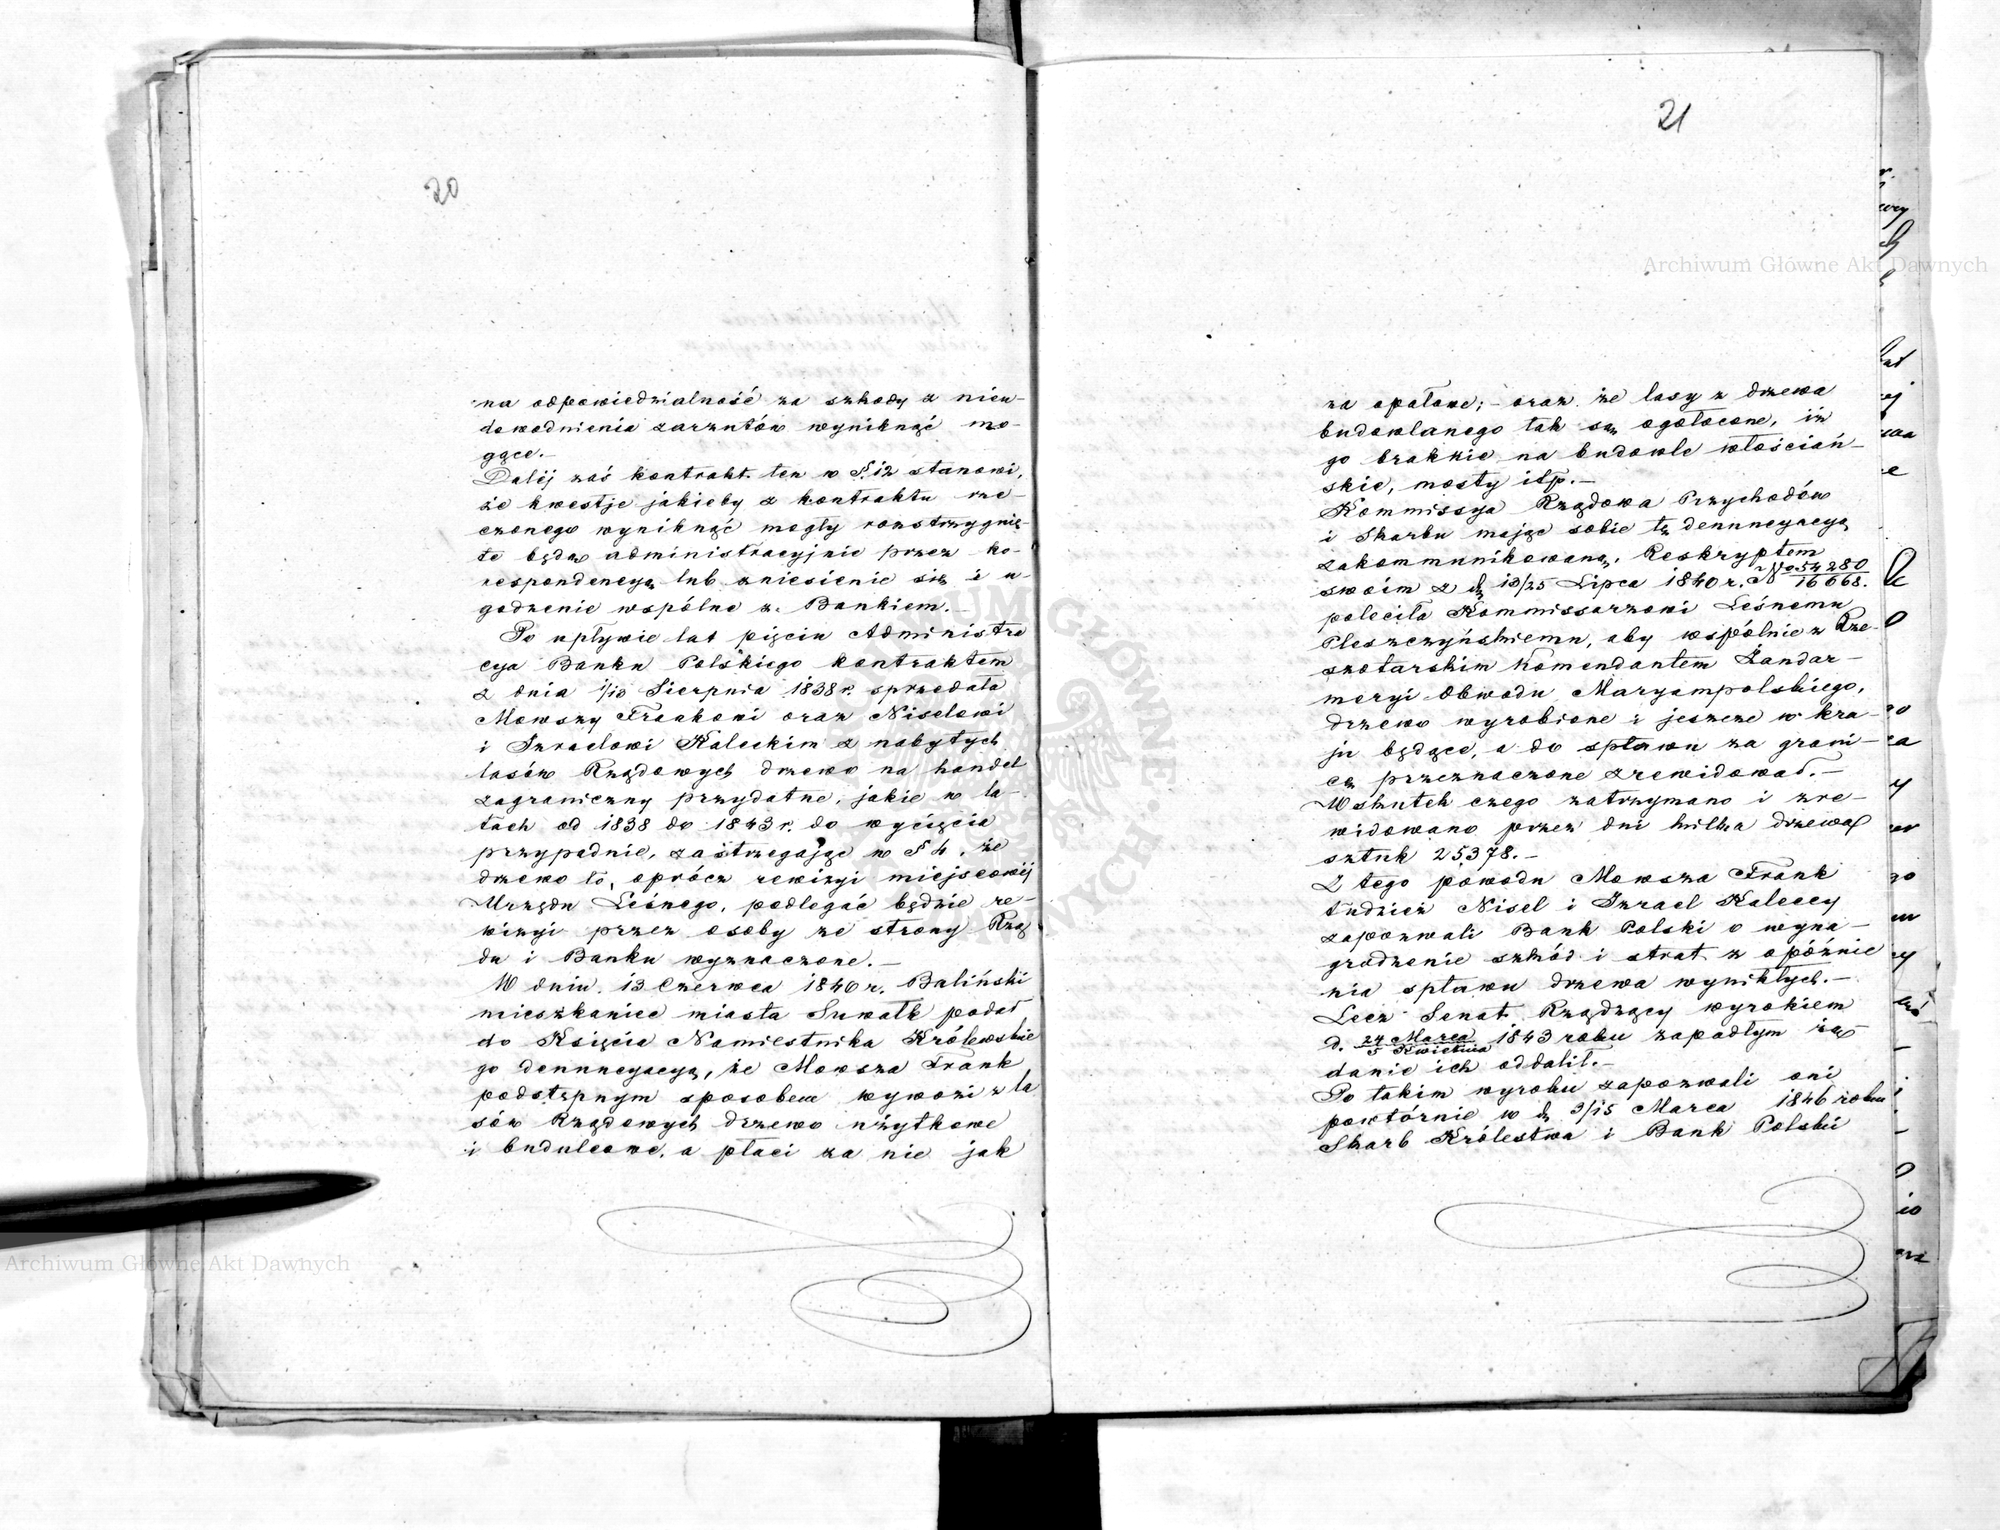 20
na odpowiedzialność za szkody z nieu-
dowodnienia zarzutów wyniknąć mo-
gące.-
Dalej zaś kontrakt ten w §. 12 stanowi,
że kwestje jakieby z kontraktu rze-
czonego wyniknąć mogły rozstrzygnię-
te będą administracyjnie przez ko-
respondencyą lub zniesienie się i u-
godzenie wspólne z Bankiem.-
Po upływie lat pięciu Administra
cya Banku Polskiego kontraktem
z dnia 1/13 Sierpnia 1838 r. sprzedała
Mowszy Frankowi oraz Niselowi
i Izraelowi Kaleckim z nabytych
lasów Rządowych drzewo na handel
zagraniczny przydatne, jakie w la-
tach od 1838 do 1843 r. do wycięcia
przypadnie, zastrzegając w § 4, że
drzewo to, oprócz rewizyi miejscowéj
Urzędu Leśnego, podlegać będzie re-
wizyi przez osoby ze strony Rzą
du i Banku wyznaczone.-
W dniu 13 Czerwca 1840 r. Baliński
mieszkaniec miasta Suwałk podał
do Księcia Namiestnika Królewskie
go denuncyacyą, że Mowsza Frank
podstępnym sposobem wywozi z la
sów Rządowych drzewo użytkowe
i budulcowe, a płaci za nie jak
21
za opałowe;- oraz że lasy z drzewa
budowlanego tak są ogołocone, iż
go braknie na budowle włościań-
skie, mosty itp.-
Kommissya Rządowa Przychodów
i Skarbu mając sobie tę denuncyacyą
zakommunikowaną, Reskryptem
swoim z d. 13/25 Lipca 1840 r. No 54280/16068.
poleciła Kommissarzowi Leśnemu
Pleszczyńskiemu, aby wspólnie z Rze-
szotarskim Komendantem Żandar-
meryi Obwodu Maryampolskiego,
drzewo wyrobione i jeszcze w kra-
ju będące, a do spławu za grani-
cę przeznaczone zrewidował.-
Wskutek czego zatrzymano i zre-
widowano przez dni kilka drzewa
sztuk 25,378.-
Z tego powodu Mowsza Frank
tudzież Nisel i Izrael Kaleccy
zapozwali Bank Polski o wyna-
grodzenie szkód i strat z opóźnie
nia spławu drzewa wynikłych.-
Lecz Senat Rządzący wyrokiem
d. 24 Marca/5 Kwietnia 1843 roku zapadłym żą-
danie ich oddalił.-
Po takim wyroku zapozwali oni
powtórnie w d. 3/15 Marca 1846 roku
Skarb Królestwa i Bank Polski
Archiwum Główne Akt Dawnych
Archiwum Główne Akt Dawnych